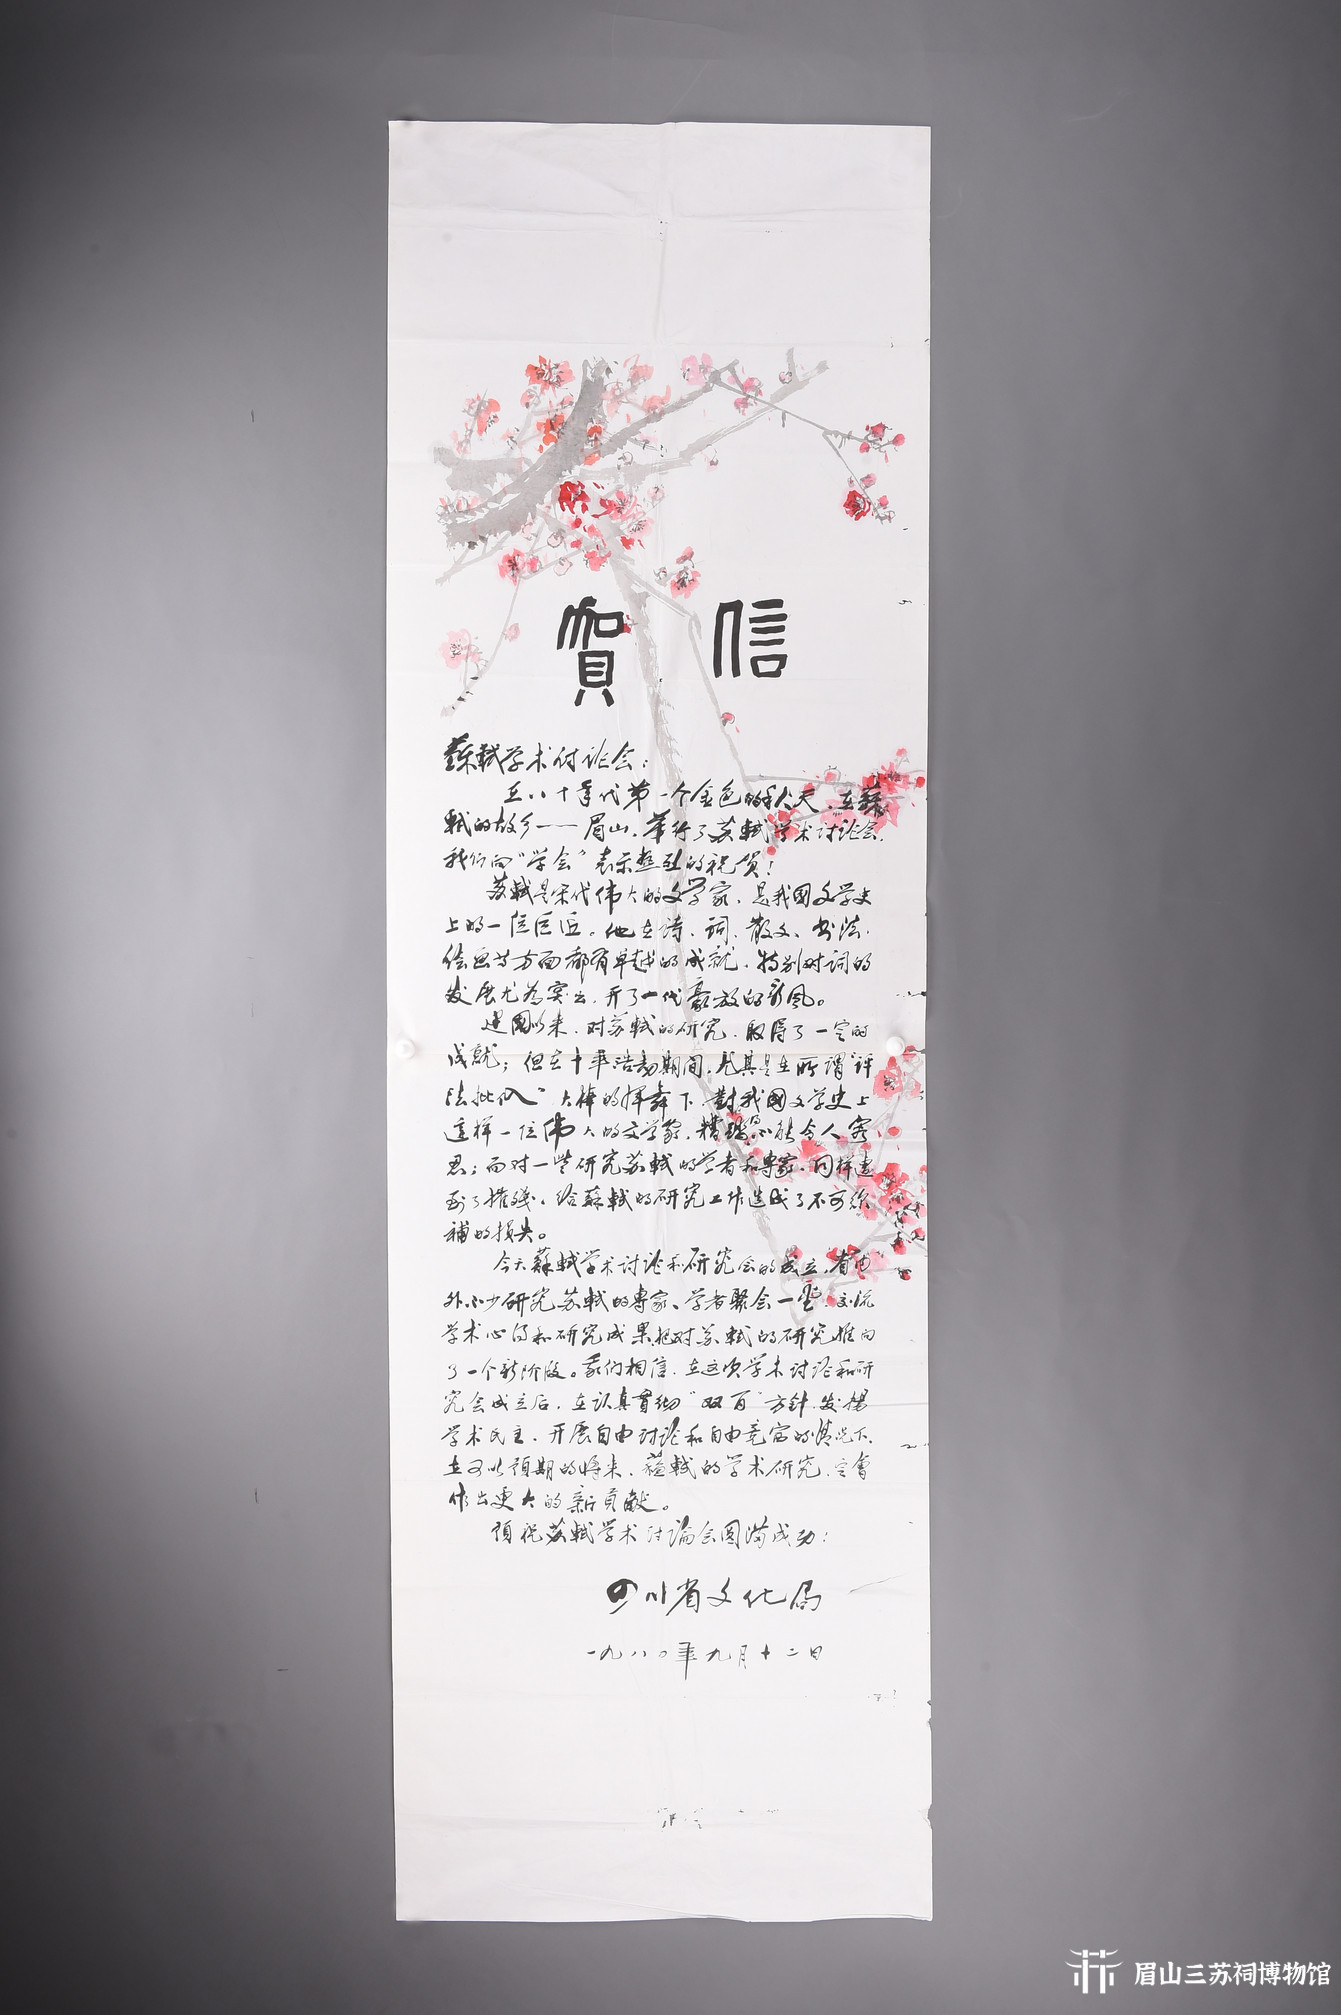 賀信
蘇軾学术讨论会：
在八十年代第一个金色的秋天，在蘇
軾的故乡——眉山，举行了苏軾学术讨论会，
我们向“学会”表示热烈的祝贺！
苏軾是宋代伟大的文学家，是我國文学史
上的一位巨匠。他在诗、词、散文、书法、
绘画等方面都有卓越的成就，特别对词的
发展尤为突出，开了一代豪放的新风。
建國以来，对苏軾的研究，取得了一定的
成就；但在十年浩劫期间，尤其是在所谓“评
法批儒”大棒的挥舞下，對我國文学史上
這样一位伟大的文学家，糟蹋的不能令人容
忍；而对一些研究苏軾的学者和專家，同样遭
到了摧残，给蘇軾的研究工作造成了不可弥
補的损失。
今天蘇軾学术讨论和研究会的成立，省内
外不少研究苏軾的專家、学者聚会一堂，交流
学术心得和研究成果，把对苏軾的研究推向
了一个新阶段。我们相信，在这次学术讨论和研
究会成立后，在认真貫彻“双百”方針，发揚
学术民主，开展自由讨论和自由竞富的情况下，
在可以预期的将来，蘇軾的学术研究，定會
作出更大的新貢献。
预祝苏軾学术讨論会圆满成功！
四川省文化局
一九八〇年九月十二日
眉山三苏祠博物馆